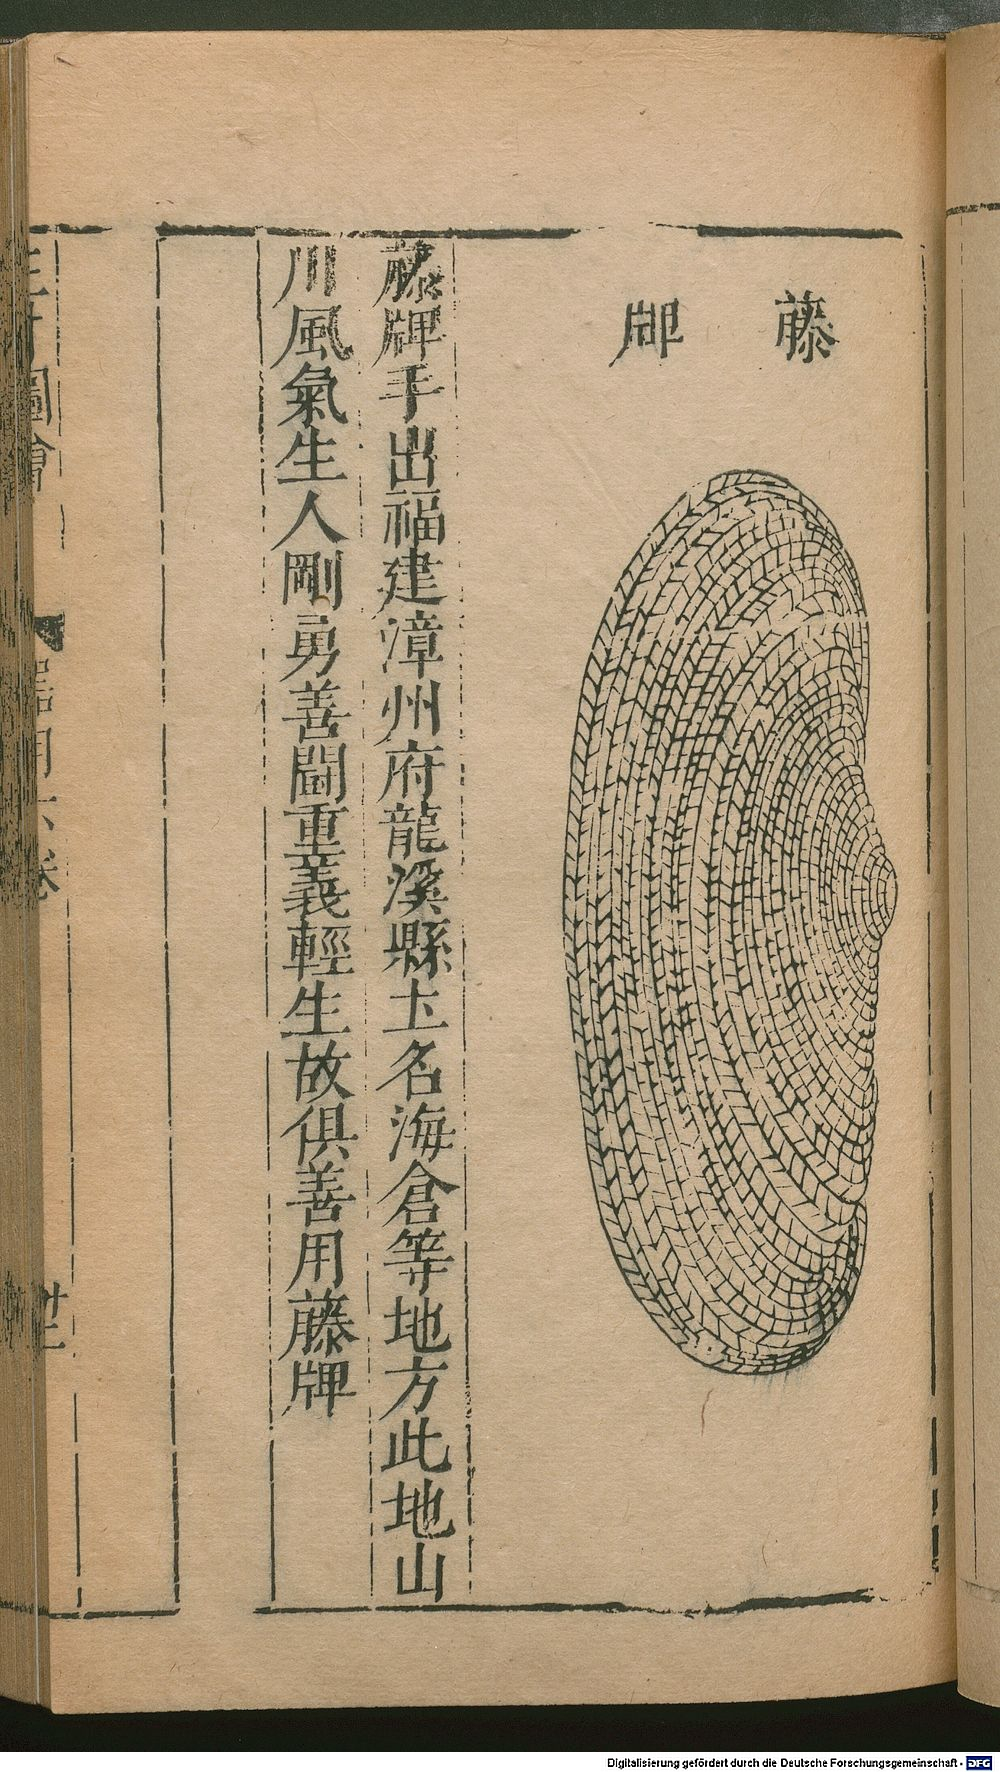 藤牌
藤牌手出福建漳州府龍溪縣土名海倉等地方此地山
川風氣生人剛勇善鬬重義輕生故俱善用藤牌
圖會
卷
Digitalisierung gefördert durch die Deutsche Forschungsgemeinschaft - DFG